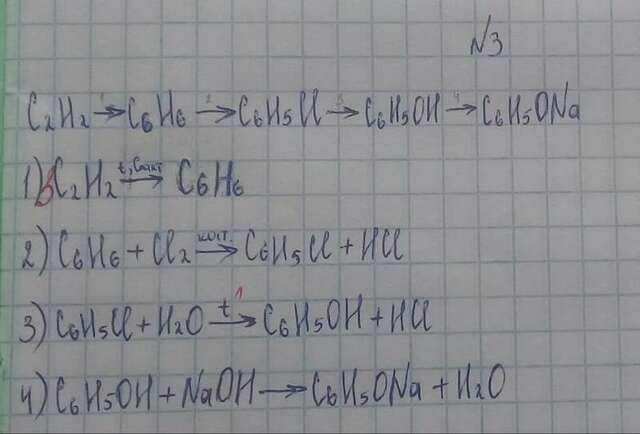 N3
C2H2 → C6H6 → C6H5Cl → C6H5OH → C6H5ONa
1) 3C2H2 t, Cакт → C6H6
2) C6H6 + Cl2 кат. → C6H5Cl + HCl
3) C6H5Cl + H2O t → C6H5OH + HCl
4) C6H5OH + NaOH → C6H5ONa + H2O